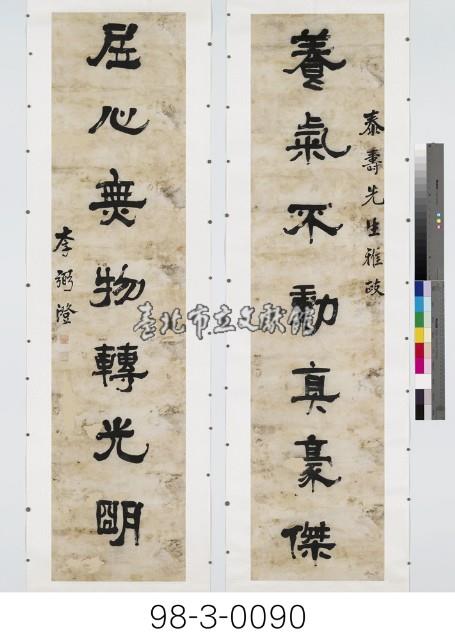 泰壽先生雅政
養氣不動真豪傑
居心無物轉光明
李弼澄
臺北市立文獻館
98-3-0090